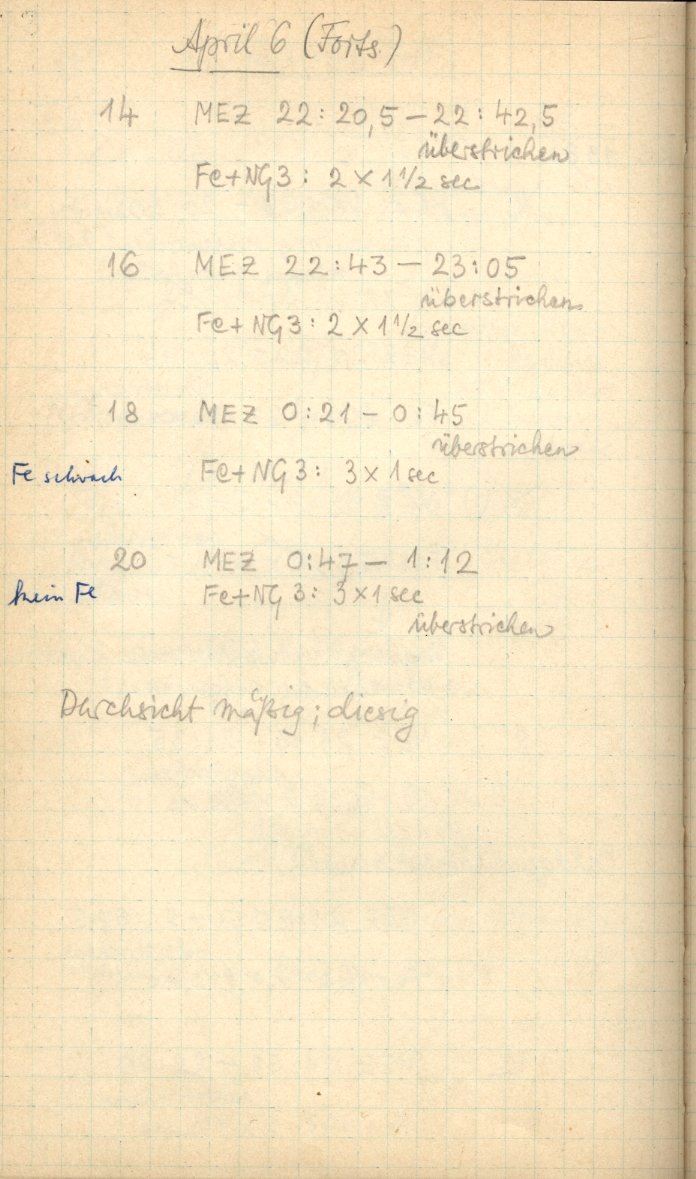 April 6 (Forts.)
14 MEZ 22:20,5 – 22:42,5
überstrichen
Fe+NG3: 2 × 1 1/2 sec
16 MEZ 22:43 – 23:05
überstrichen
Fe+NG3: 2 × 1 1/2 sec
18 MEZ 0:21 – 0:45
überstrichen
Fe schwach Fe+NG3: 3 × 1 sec
20 MEZ 0:47 – 1:12
kein Fe Fe+NG3: 3 × 1 sec
überstrichen
Durchsicht mäßig; diesig